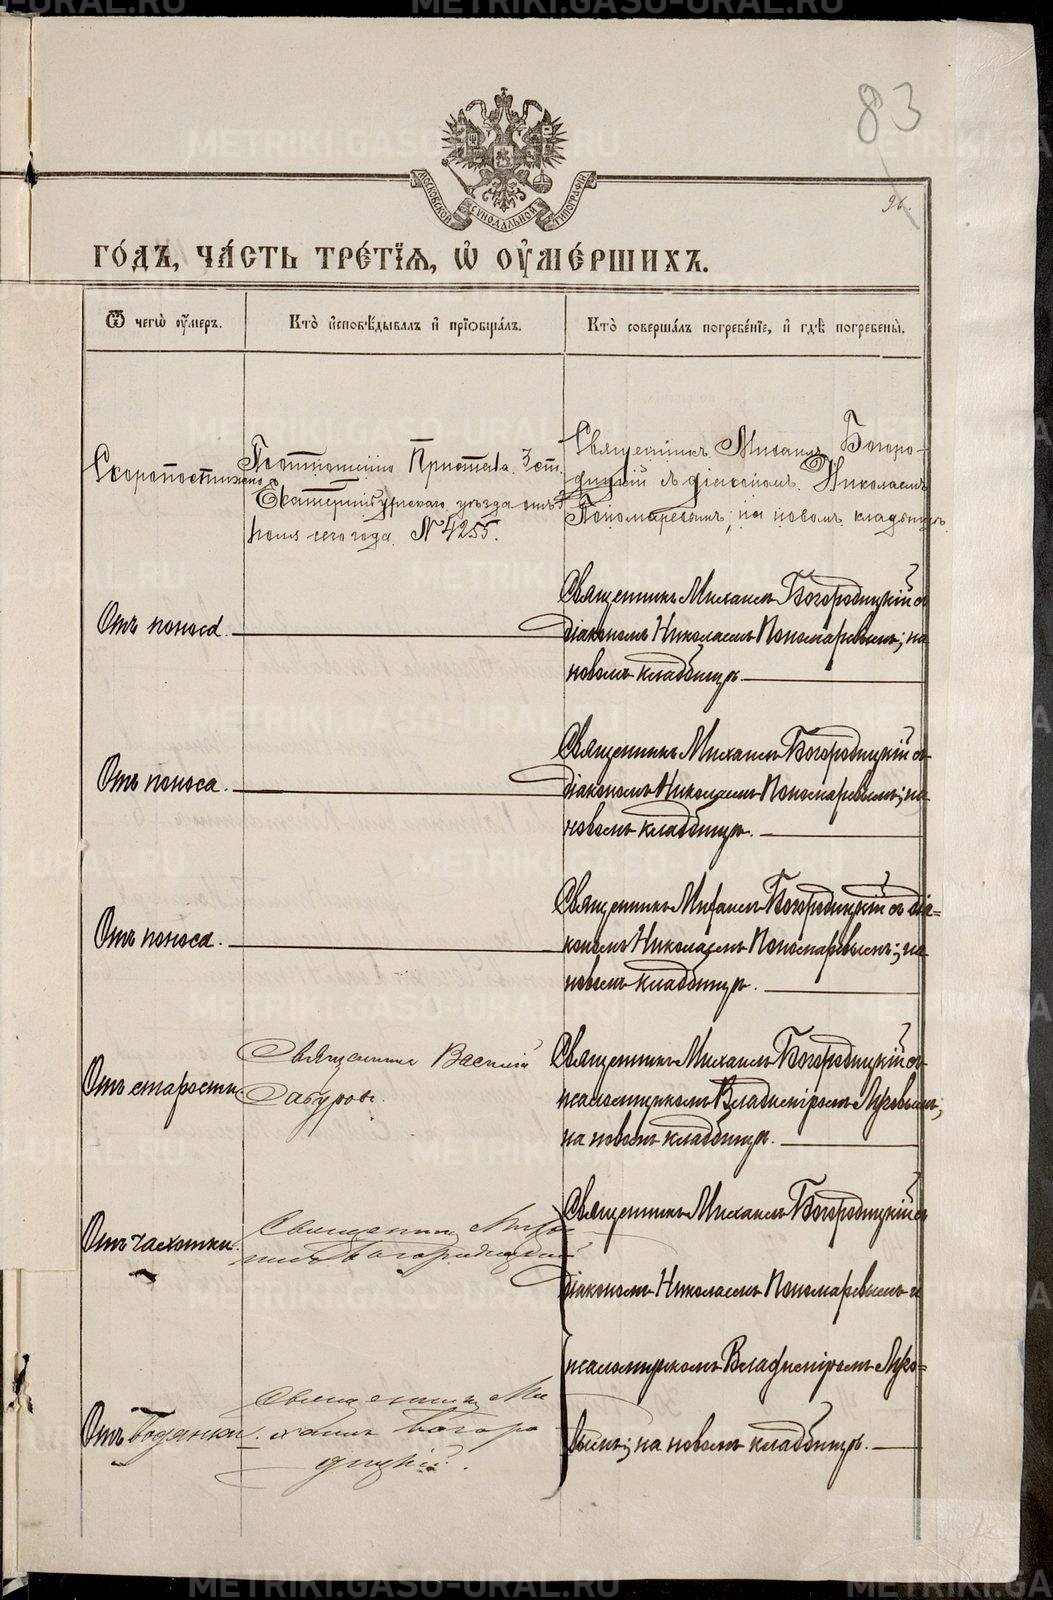 83
96.
МОСКОВСКОЙ СѴНОДАЛЬНОЙ ТИПОГРАФІИ
ГО́ДЪ, ЧА́СТЬ ТРЕ́ТЇѦ, Ѡ҆ ОУ҆МЕ́РШИХЪ.
Ѿ чегѡ̀ оу҆́меръ.
Кто̀ и҆сповѣ́дывалъ и҆ прїѻбща́лъ.
Кто̀ соверша́лъ погребе́нїе, и҆ гдѣ̀ погребены̀.
Скоропостижно
Пристава 3 ст.
Екатеринбургскаго уѣзда отъ
сего года № 4255.
Священникъ Михаилъ Богоро-
дицкій съ діакономъ Николаемъ
Пономаревымъ, на новомъ кладбищѣ.
Отъ поноса.
Священникъ Михаилъ Богородицкій съ
діакономъ Николаемъ Пономаревымъ; на
новомъ кладбищѣ.
Отъ поноса.
Священникъ Михаилъ Богородицкій съ
діакономъ Николаемъ Пономаревымъ; на
новомъ кладбищѣ.
Отъ поноса.
Священникъ Михаилъ Богородицкій съ діа=
кономъ Николаемъ Пономаревымъ; на
новомъ кладбищѣ.
Отъ старости.
Священникъ Василій
Сабуровъ.
Священникъ Михаилъ Богородицкій съ
псаломщикомъ Владиміромъ
на новомъ кладбищѣ.
Отъ чахотки.
Священникъ Миха
илъ Богородицкій
Отъ водянки.
Священникъ Ми
хаилъ Богоро
дицкій.
Священникъ Михаилъ Богородицкій съ
діакономъ Николаемъ Пономаревымъ и
псаломщикомъ Владиміромъ
вымъ; на новомъ кладбищѣ.
METRIKI.GASO-URAL.RU